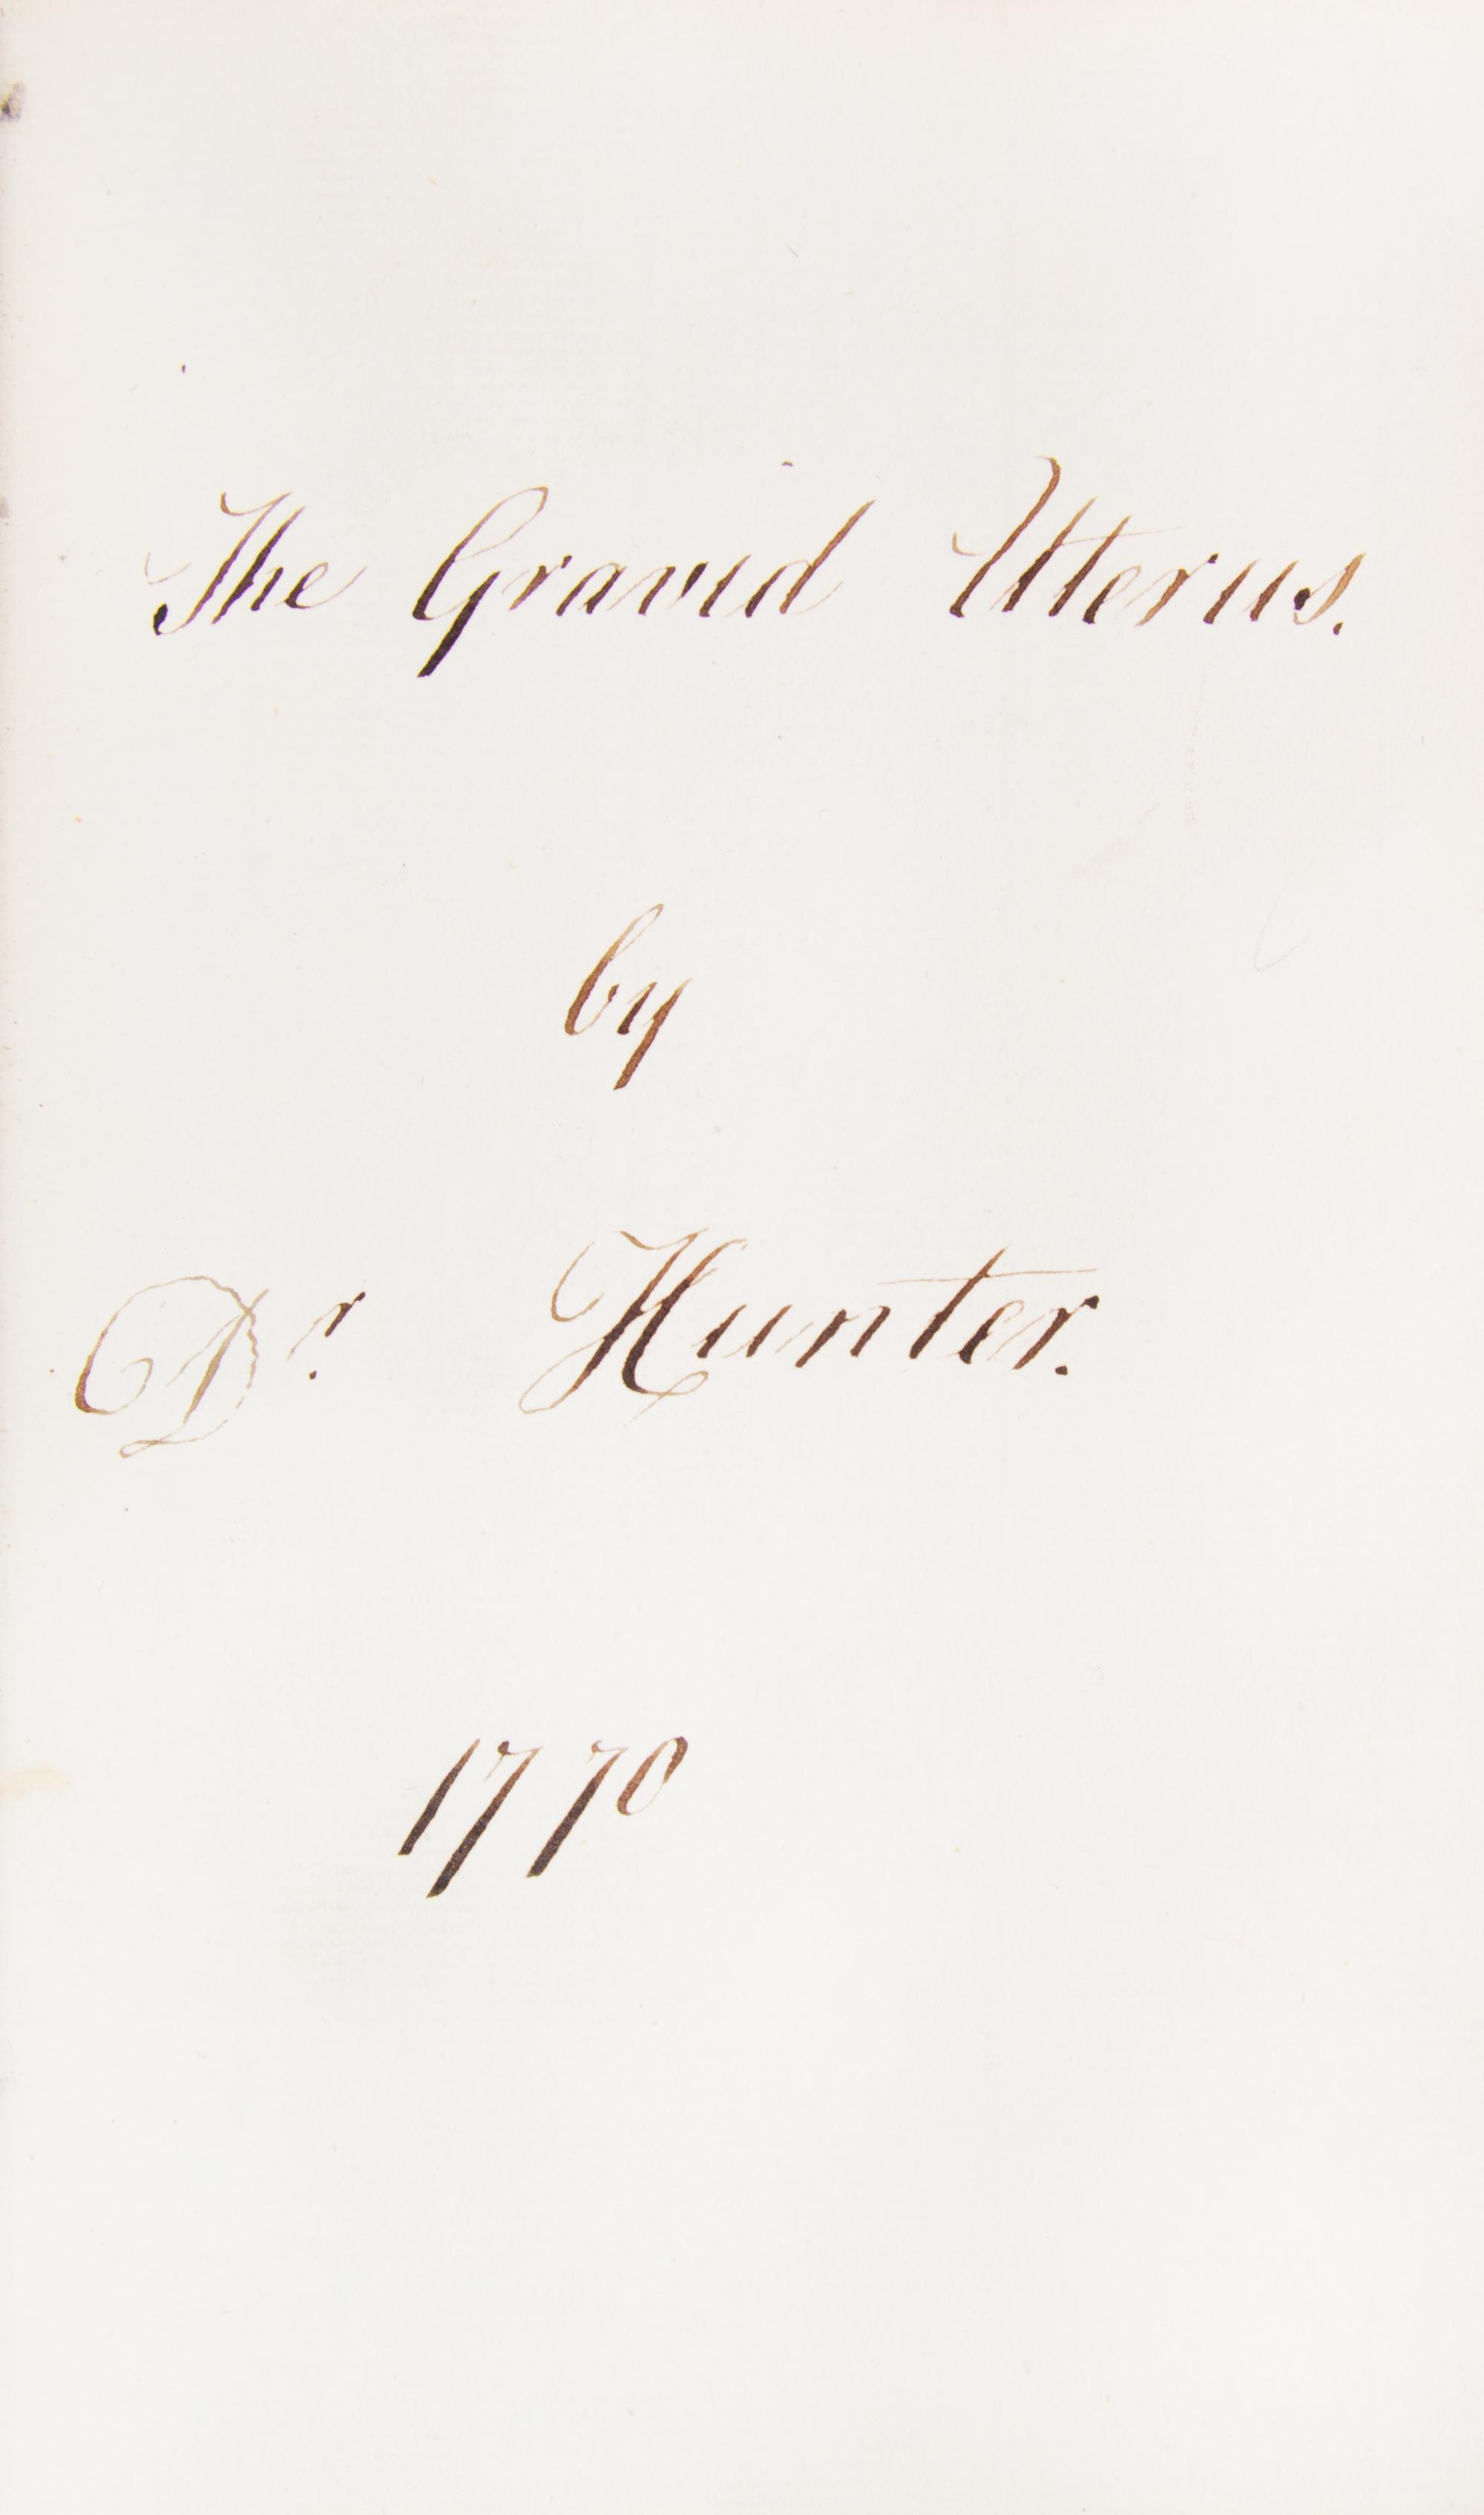 The Gravid Uterus.
by
Dr. Hunter.
1770